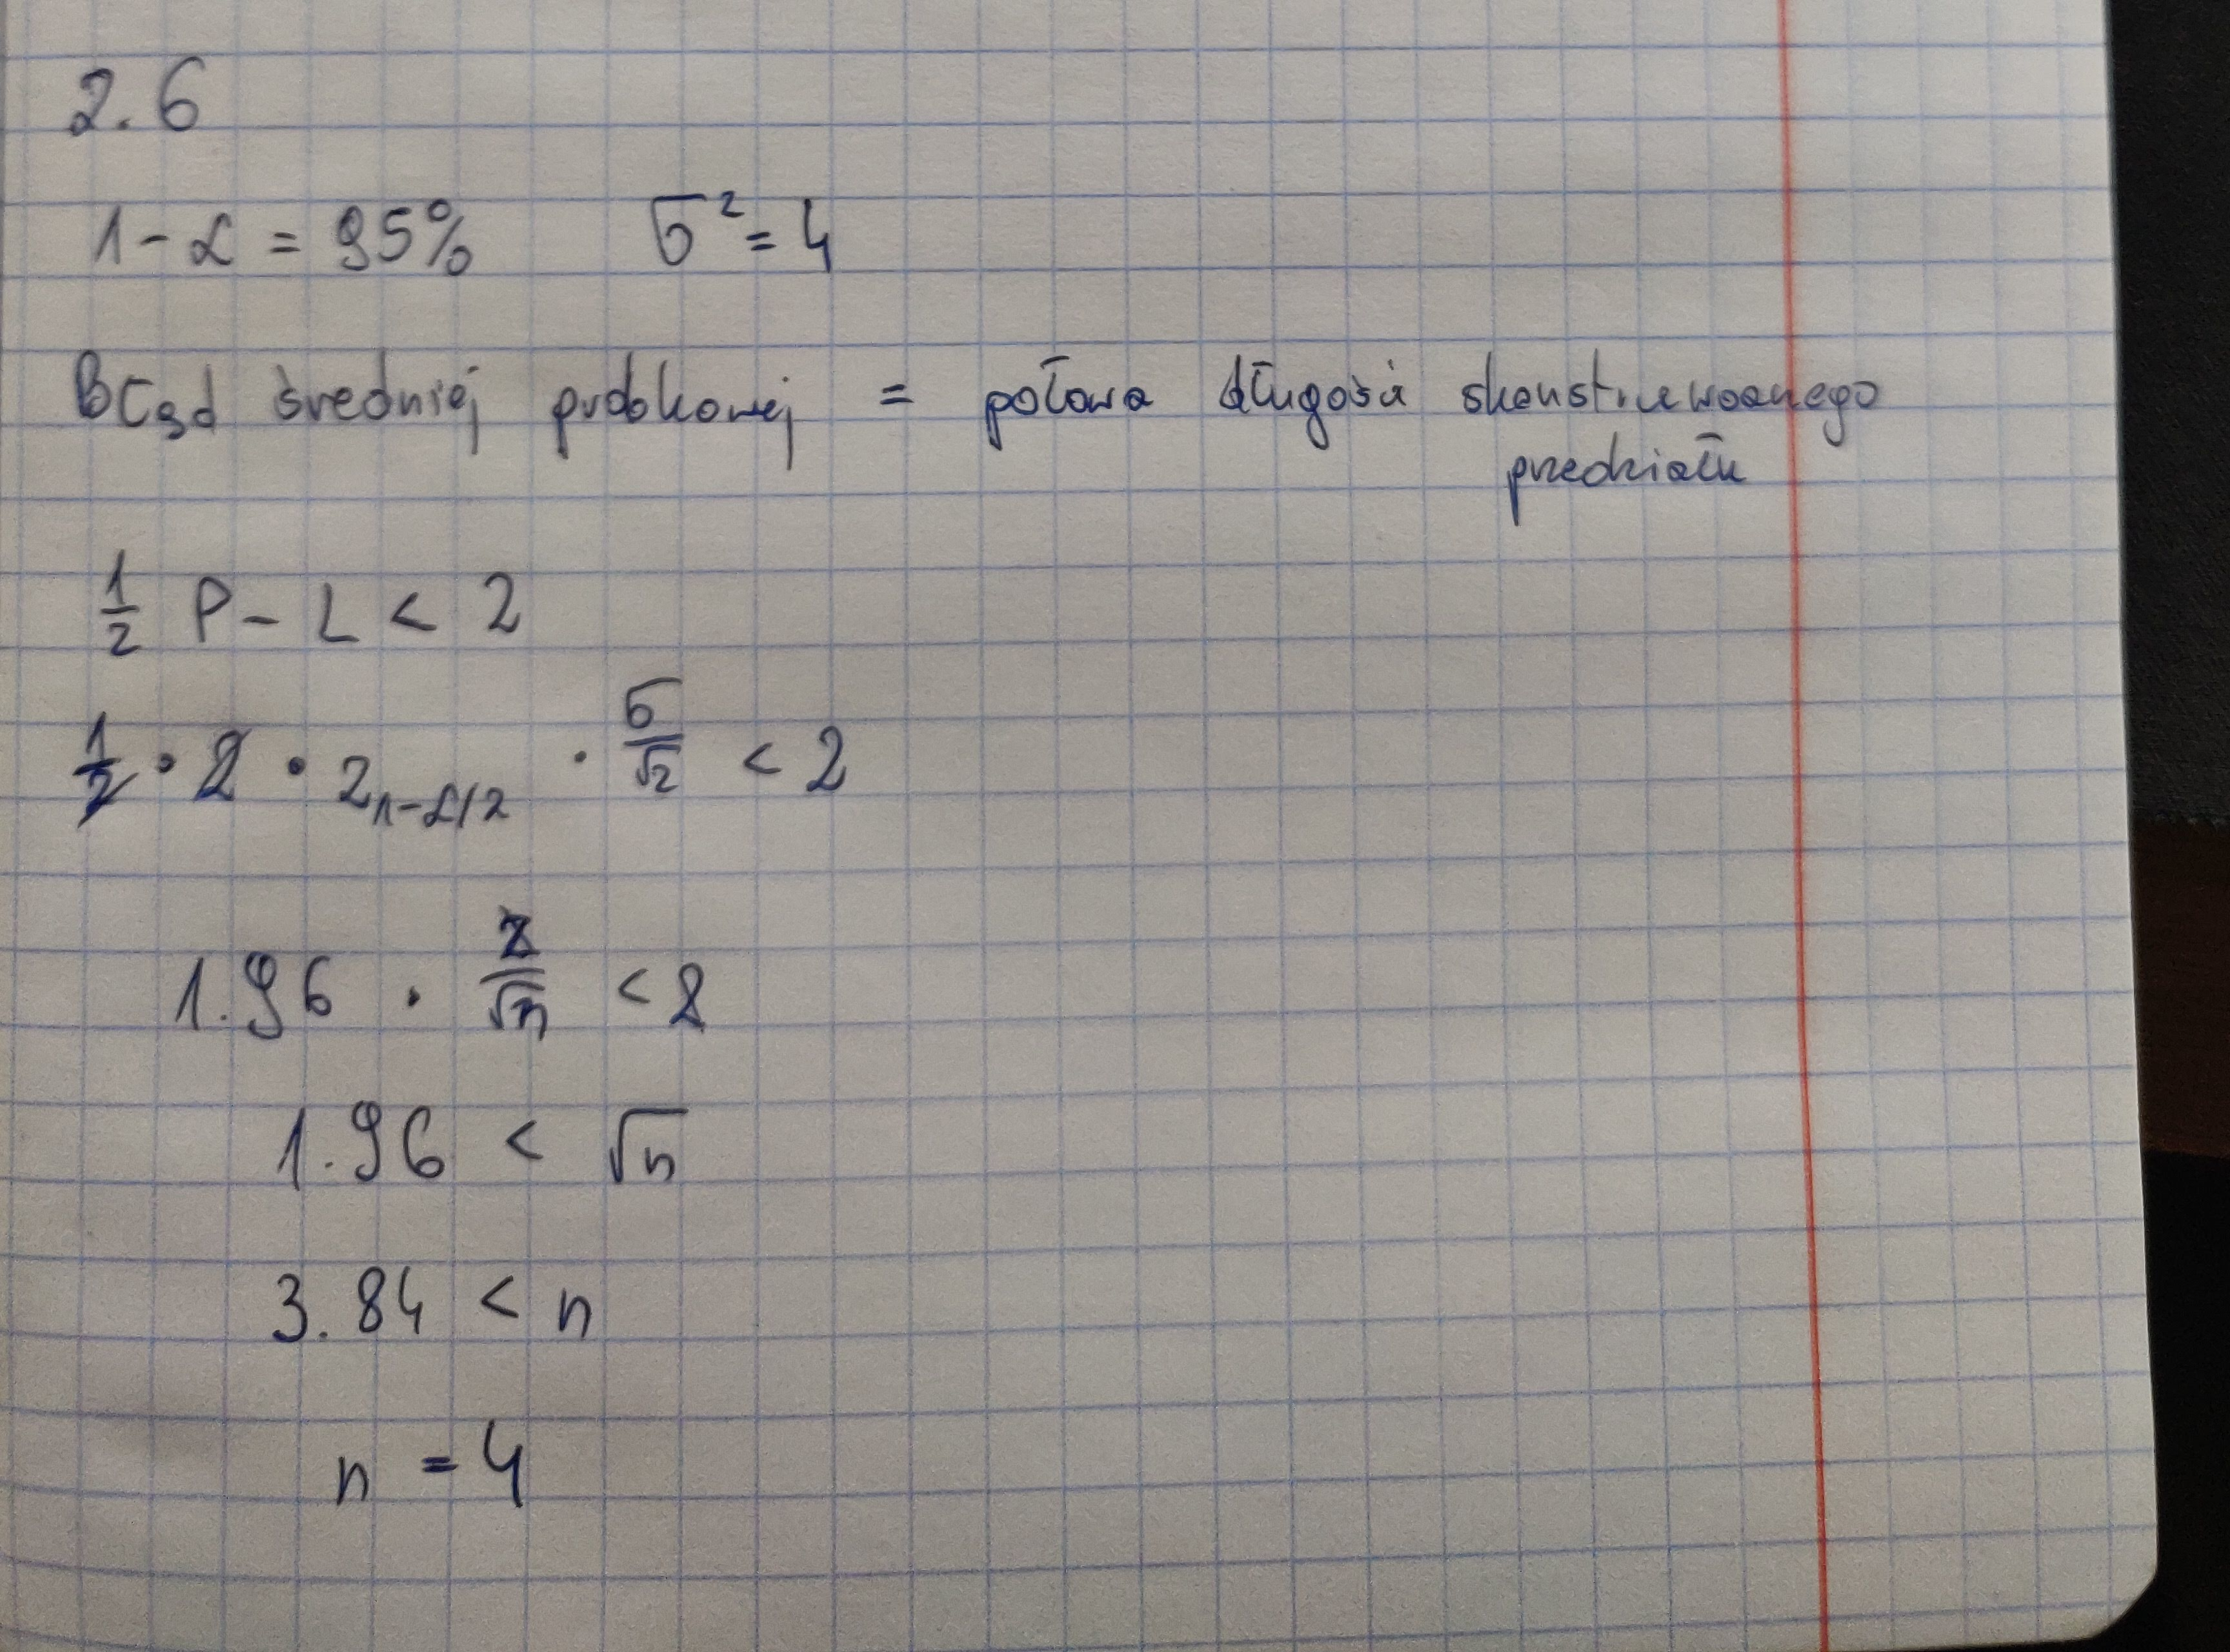 2.6
1-α = 95% σ² = 4
Błąd średniej próbkowej = połowa długości skonstruowanego
przedziału
1/2 P - L < 2
1/2 · 2 · z₁₋α/2 · σ/√2 < 2
1.96 · 2/√n < 2
1.96 < √n
3.84 < n
n = 4